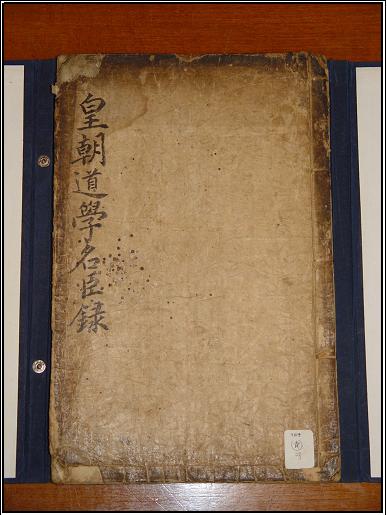 皇朝道學名臣錄